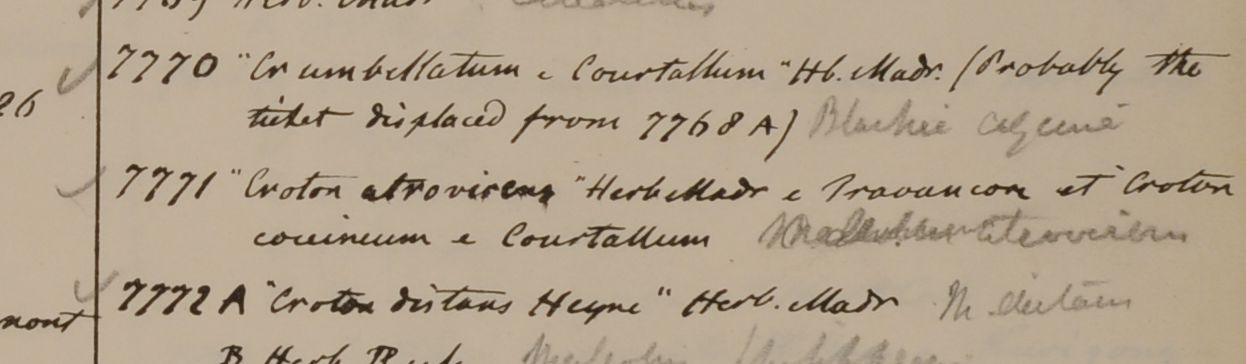 Herb. Madr
7770 "Cr umbellatum e Courtallum" Hb. Madr. (Probably the
26
ticket displaced from 7768 A)
7771 "Croton atrovirens" Herb Madr e Travancore et Croton
coccineum e Courtallum
7772 A "Croton distans Heyne" Herb. Madr M. distans
mont
B Herb